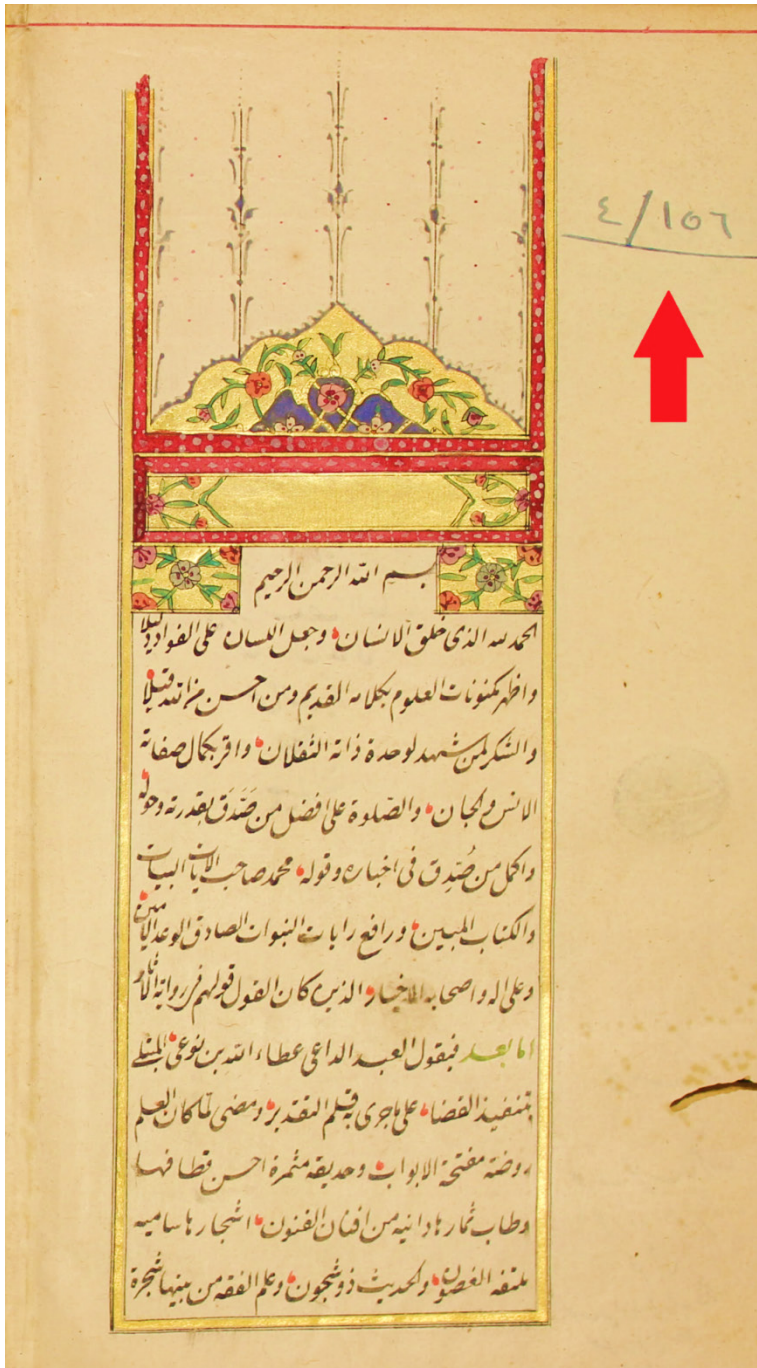 ٤/١٥٦
بسم الله الرحمن الرحيم
الحمد لله الذى خلق الانسان وجعل اللسان على الفواد دليلا
واظهر مكنونات العلوم بكلامه القديم ومن احسن من الله قيلا
والشكر لمن شهد لوحدة ذاته الثقلان واقر بكمال صفاته
الانس والجان والصلوة على افضل من صَدَق بقدرته وحوله
واكمل من صُدّق فى اخباره وقوله محمد صاحب الايات البينات
والكتاب المبين ورافع رايات النبوات الصادق الوعد الامين
وعلى اله واصحابه الاخيار الذين كان القول قولهم فى رواية الاثار
اما بعد فيقول العبد الداعى عطاء الله بن نوعى المبتلى
بتنفيذ القضاء على ماجرى به قلم التقدير ومضى لما كان العلم
روضة مفتحة الابواب وحديقه مثمرة احسن قطافها
وطاب ثمارها دانيه من افنان الفنون اشجارها ساميه
ملتفه الغصون والحديث ذو شجون وعلم الفقه من بينها شجرة